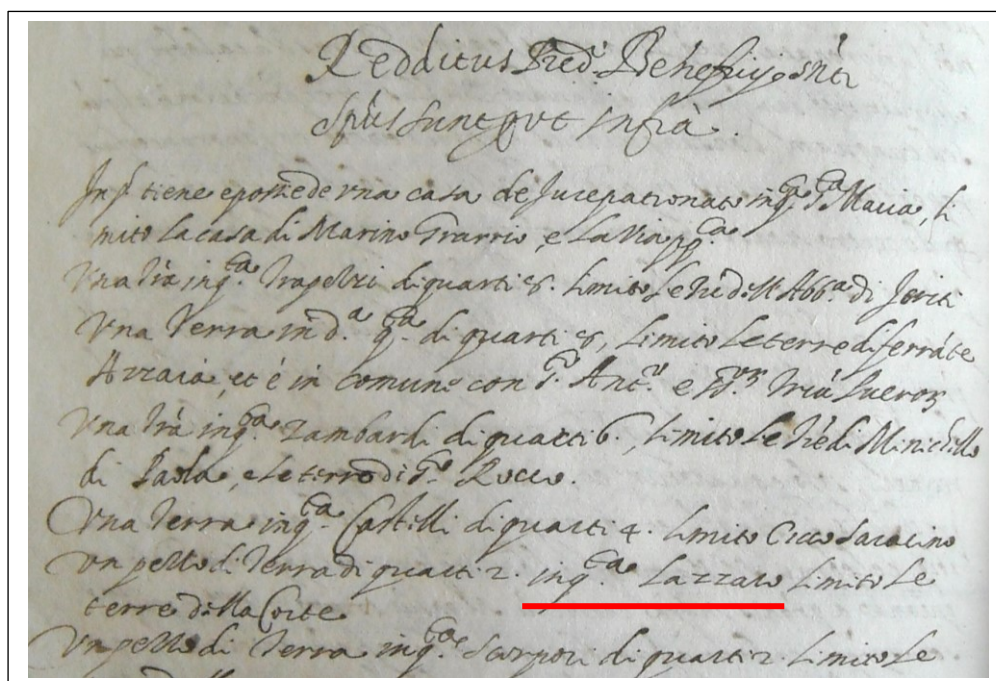 Redditus Pred.ti Beneficij S.ti
Sp̃us sunt p̃ut infra.
In p.s tiene e possiede una casa de Jure patronato in q.ta S.ta Maria, li
mito la casa di Marino Grarrio, e la Via pp.ca
Una Trã in q.ta Trapetzi di quarti 8. limito le Trẽ dell'Abb.a di Joriti
Una Terra in d.a q.ta di quarti 8, limito le terre di ferrãte
Azzaia, et é in comune con S. Ant.o e
Una Trã in q.ta Zambardi di quarti 6., limito le Trẽ di Minichillo
di Paola, e le terre di S.to Rocco.
Una Terra in q.ta Castilli di quarti 4. limito Cicco Saracino
un pezzo di Terra di quarti 2. in q.ta Lazzaro limito le
terre della Corte
Un pezzo di Terra in q.ta Scorpori di quarti 2. limito le